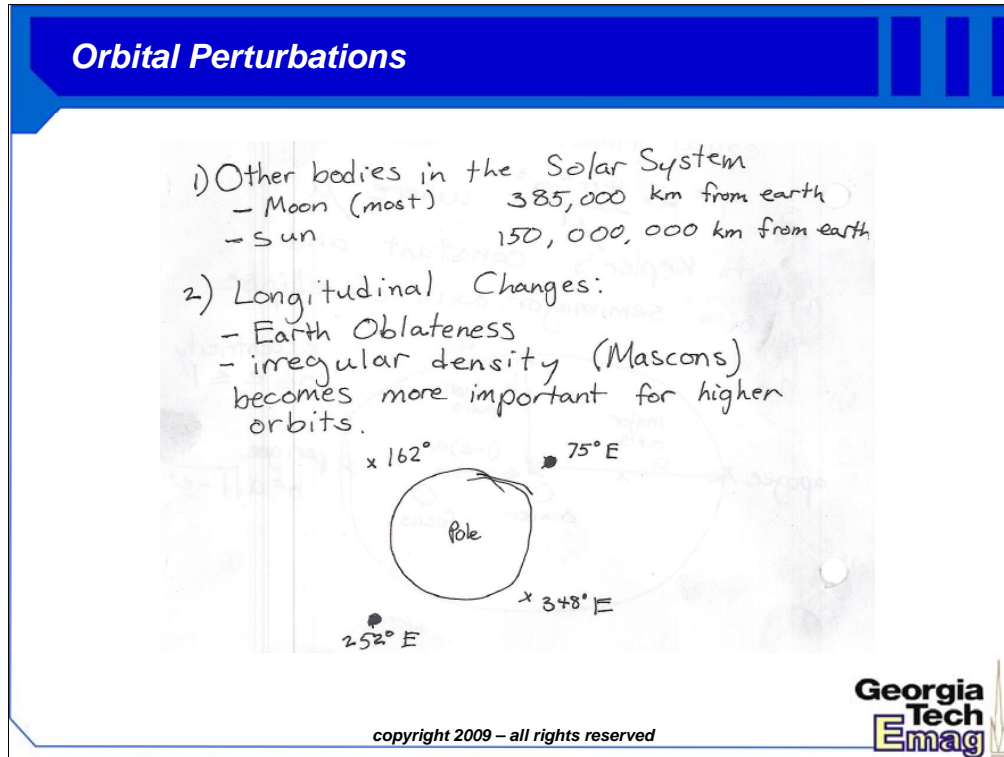 Orbital Perturbations
1) Other bodies in the Solar System
- Moon (most) 385,000 km from earth
- Sun 150,000,000 km from earth
2) Longitudinal Changes:
- Earth Oblateness
- irregular density (Mascons)
becomes more important for higher
orbits.
x 162° 75° E
Pole
x 348° E
252° E
Georgia
Tech
Emag
copyright 2009 – all rights reserved